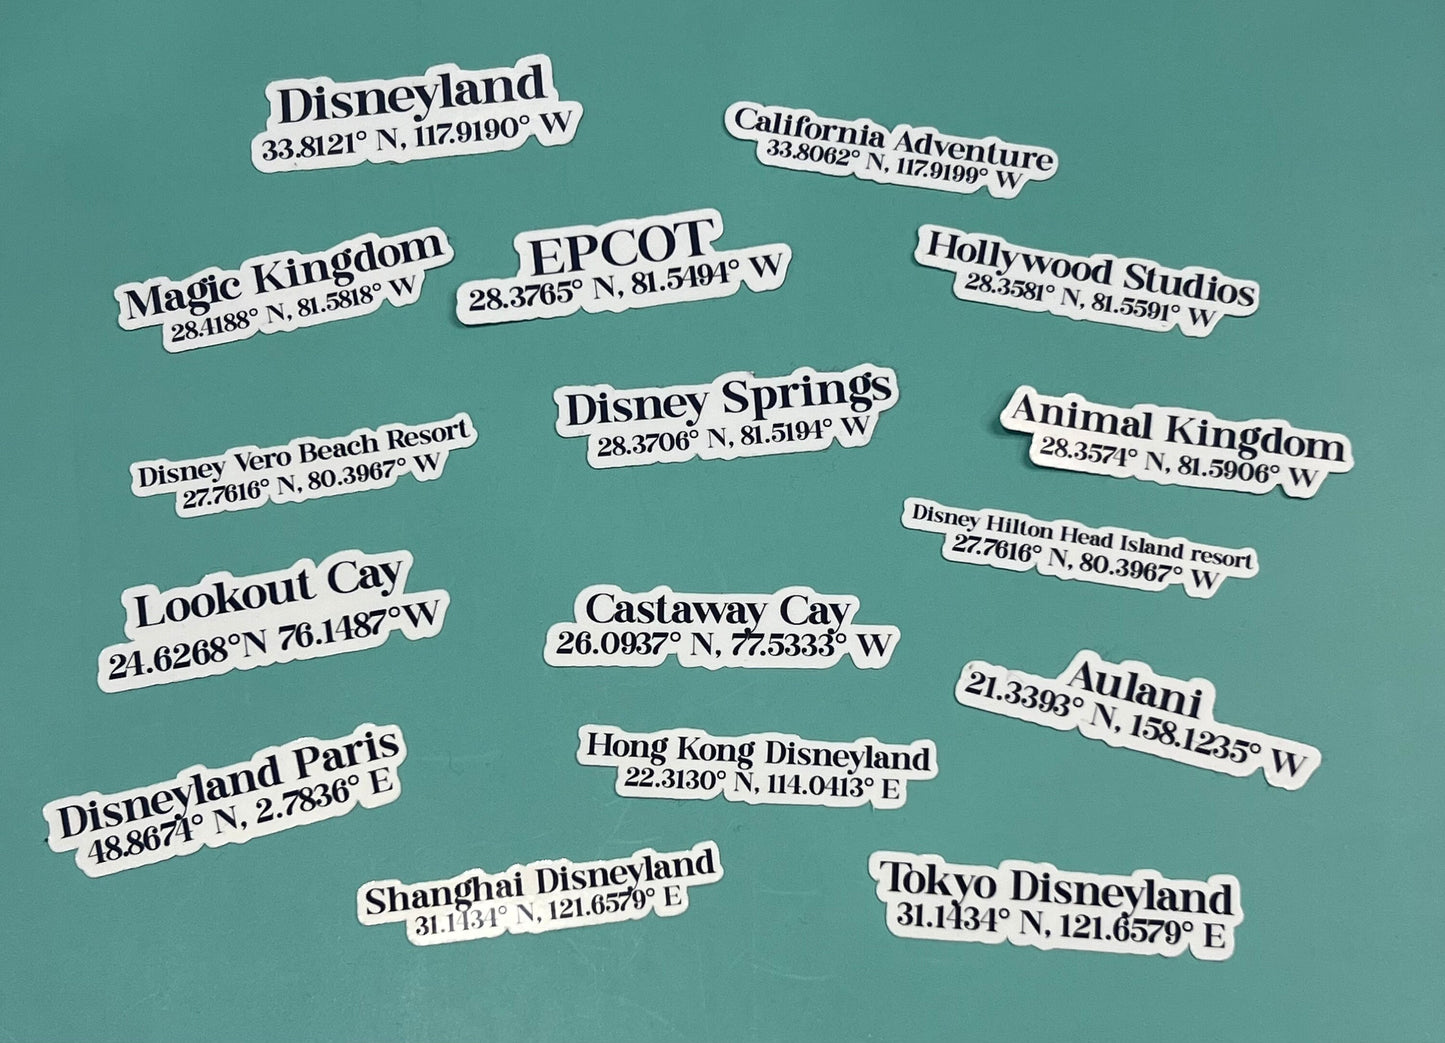 Disneyland
33.8121° N, 117.9190° W
California Adventure
33.8062° N, 117.9199° W
Magic Kingdom
28.4188° N, 81.5818° W
EPCOT
28.3765° N, 81.5494° W
Hollywood Studios
28.3581° N, 81.5591° W
Disney Vero Beach Resort
27.7616° N, 80.3967° W
Disney Springs
28.3706° N, 81.5194° W
Animal Kingdom
28.3574° N, 81.5906° W
Disney Hilton Head Island resort
27.7616° N, 80.3967° W
Lookout Cay
24.6268°N 76.1487°W
Castaway Cay
26.0937° N, 77.5333° W
Aulani
21.3393° N, 158.1235° W
Disneyland Paris
48.8674° N, 2.7836° E
Hong Kong Disneyland
22.3130° N, 114.0413° E
Shanghai Disneyland
31.1434° N, 121.6579° E
Tokyo Disneyland
31.1434° N, 121.6579° E